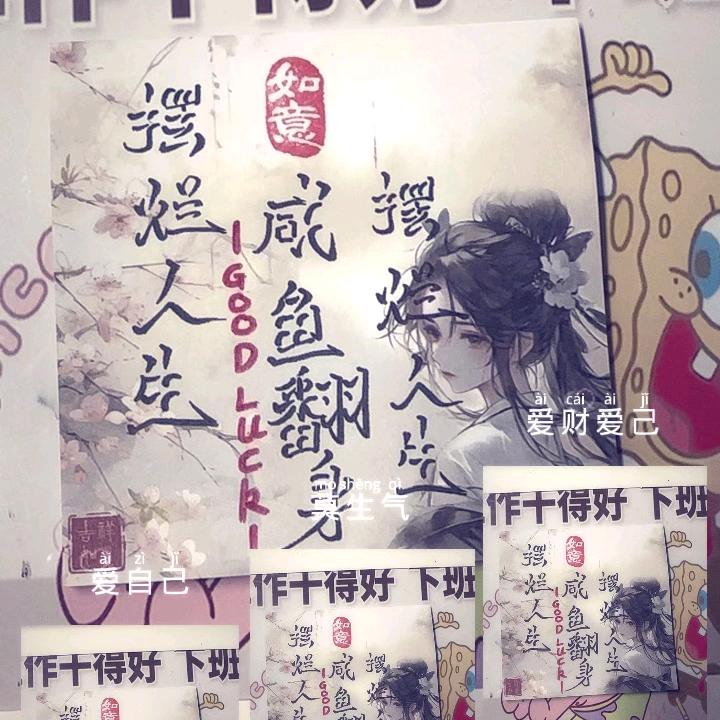 作十得好 下班
如意
摆烂人生
咸鱼翻身
摆烂人生
I GOOD LUCK I
吉祥如意
ài cái ài jǐ
爱财爱己
mò shēng qì
莫生气
ài zì jǐ
爱自己
作十得好 下班
如意
摆烂人生
咸鱼翻身
摆烂人生
I GOOD LUCK I
作十得好 下班
如意
摆
咸
摆烂
I GOOD
作十得好 下班
如意
摆